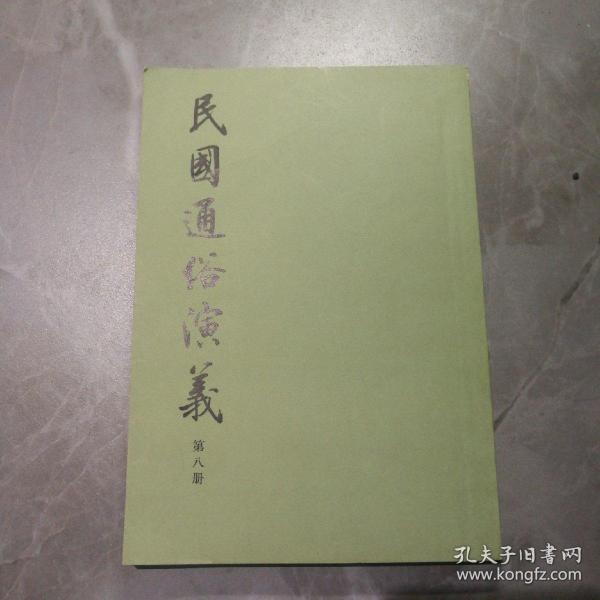 民國通俗演義
第八册
孔夫子旧書网
www.kongfz.com